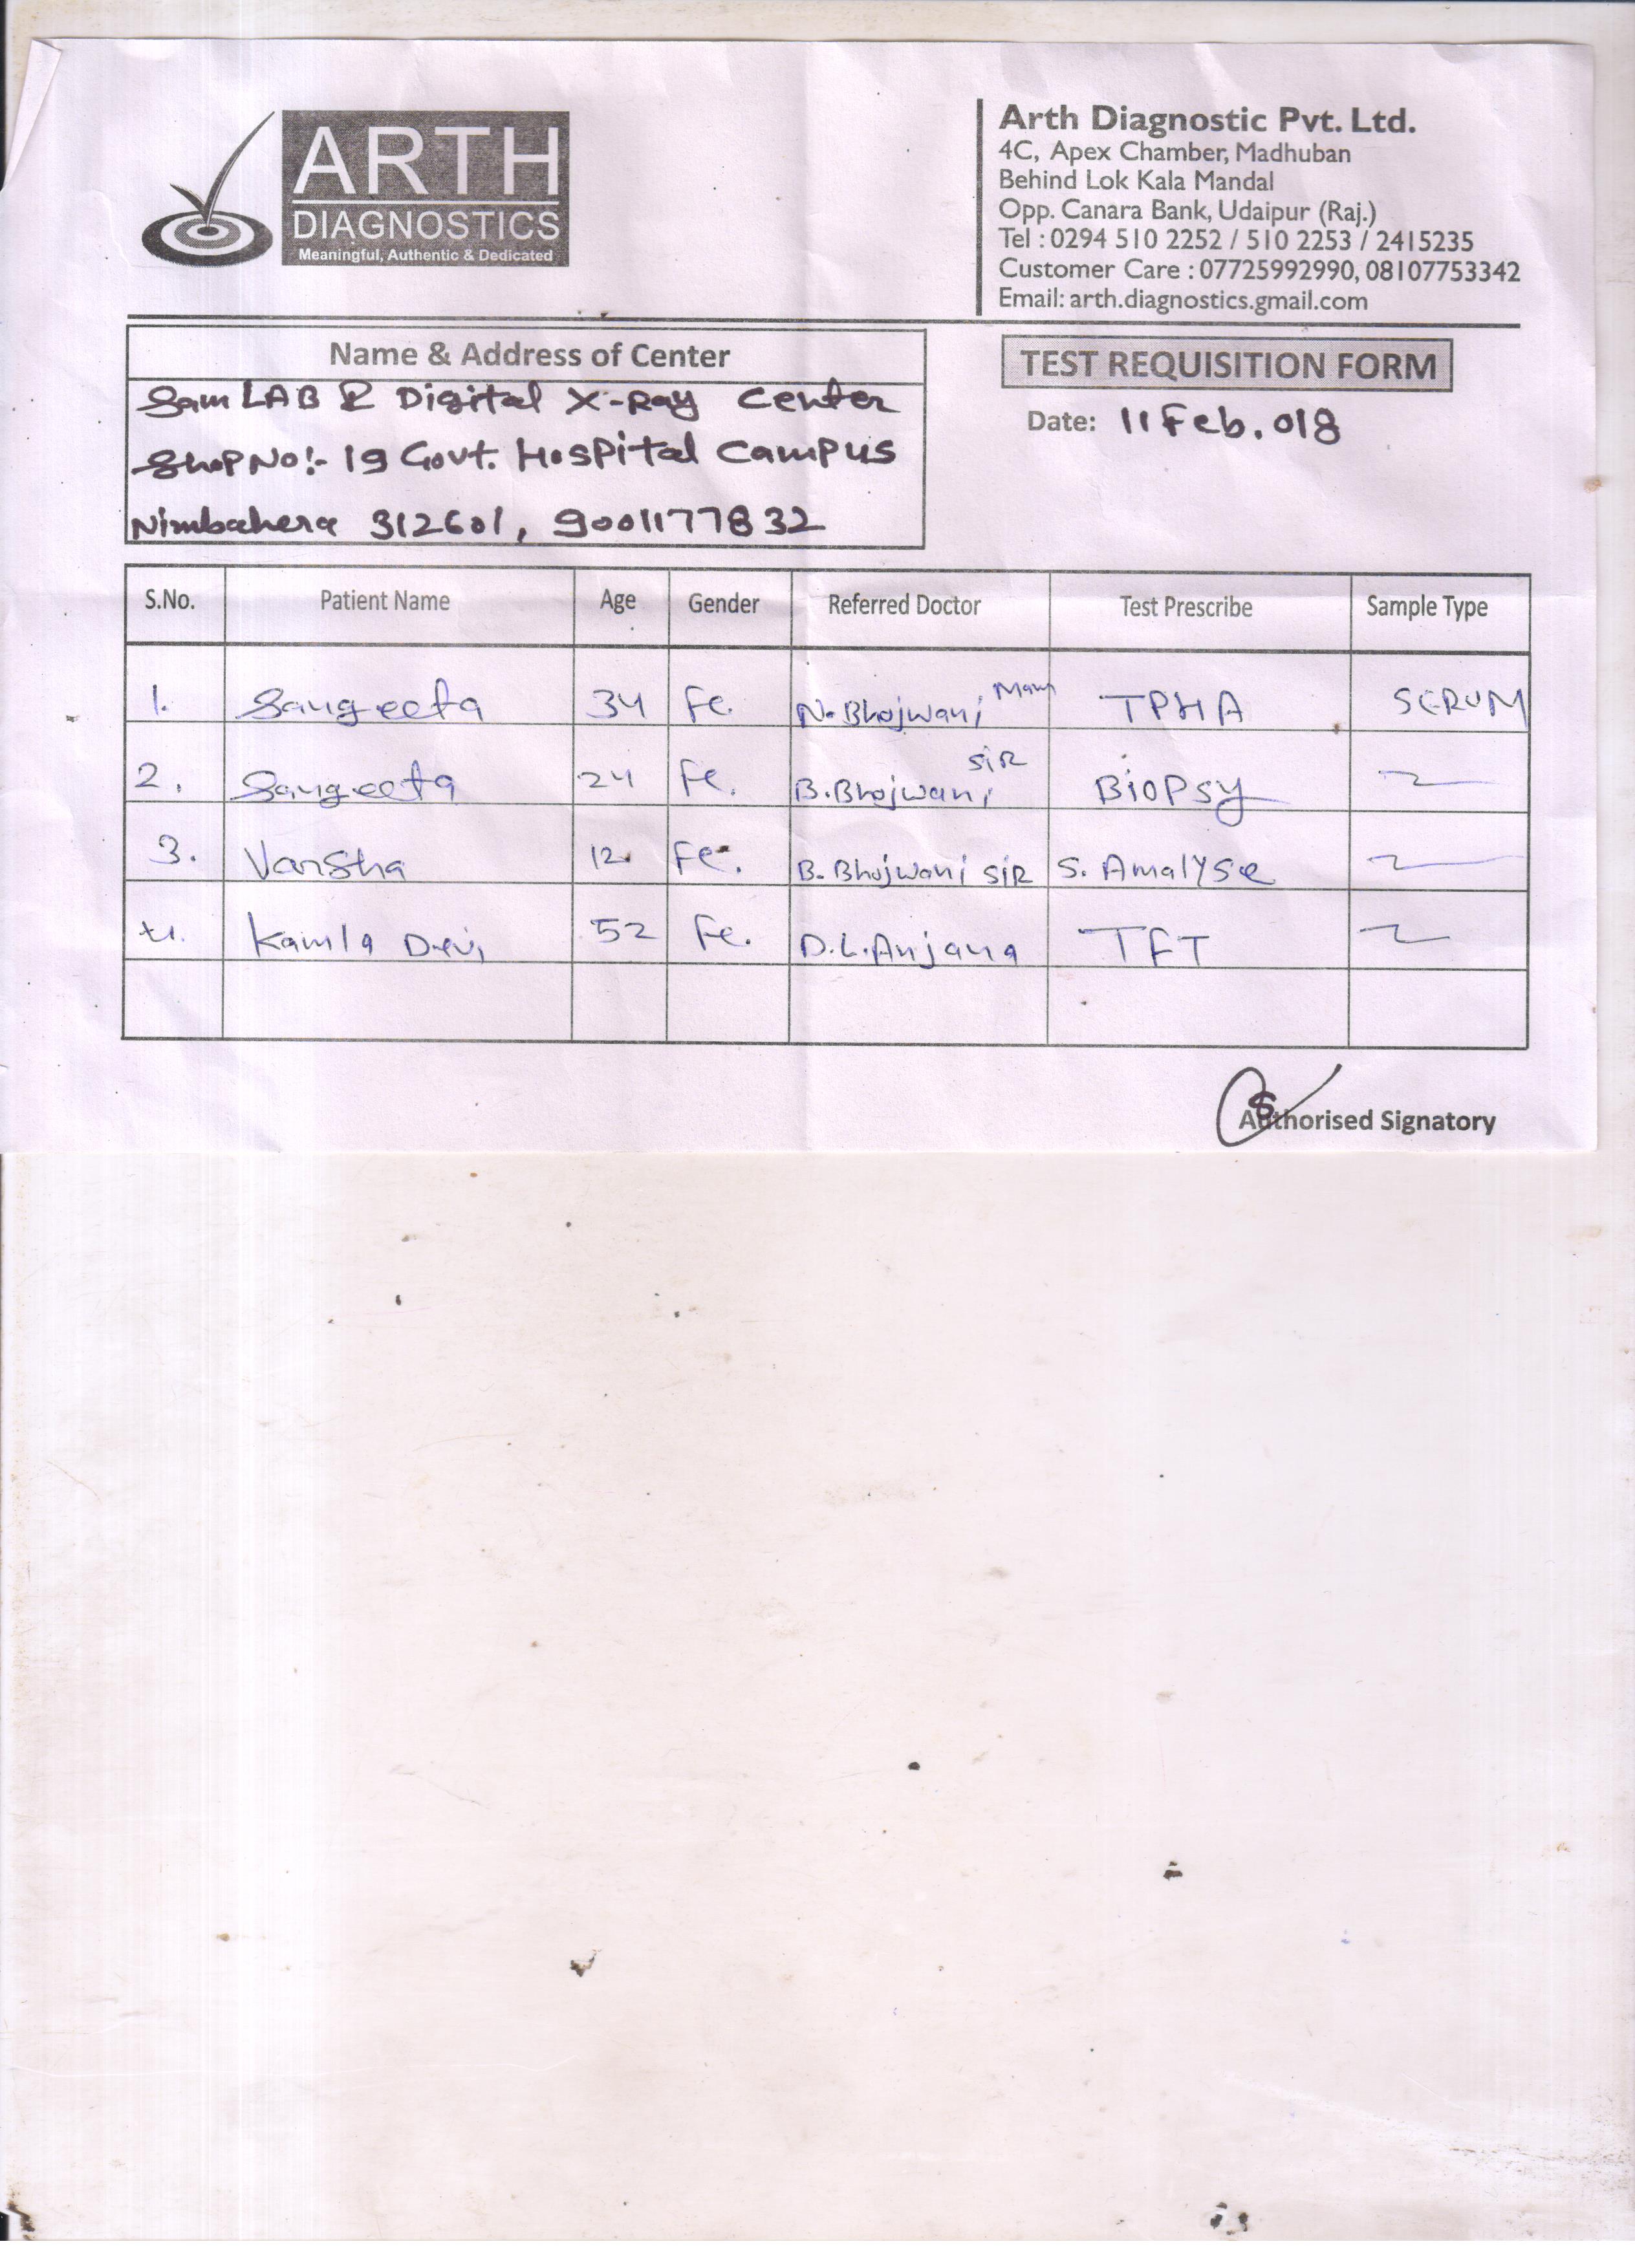 ARTH
DIAGNOSTICS
Meaningful, Authentic & Dedicated
Arth Diagnostic Pvt. Ltd.
4C, Apex Chamber, Madhuban
Behind Lok Kala Mandal
Opp. Canara Bank, Udaipur (Raj.)
Tel : 0294 510 2252 / 510 2253 / 2415235
Customer Care : 07725992990, 08107753342
Email: arth.diagnostics.gmail.com
Name & Address of Center
Sam LAB & Digital X-Ray Center
Shop No:- 19 Govt. Hospital Campus
Nimbahera 312601, 9001177832
TEST REQUISITION FORM
Date: 11 Feb. 018
S.No. Patient Name Age Gender Referred Doctor Test Prescribe Sample Type
1. Sangeeta 34 Fe. N. Bhojwani Mam TPHA SERUM
2. Sangeeta 24 Fe. B. Bhojwani SIR Biopsy
3. Varsha 12 Fe. B. Bhojwani SIR S. Amalyse
4. Kamla Devi 52 Fe. D.L. Anjana TFT
Authorised Signatory